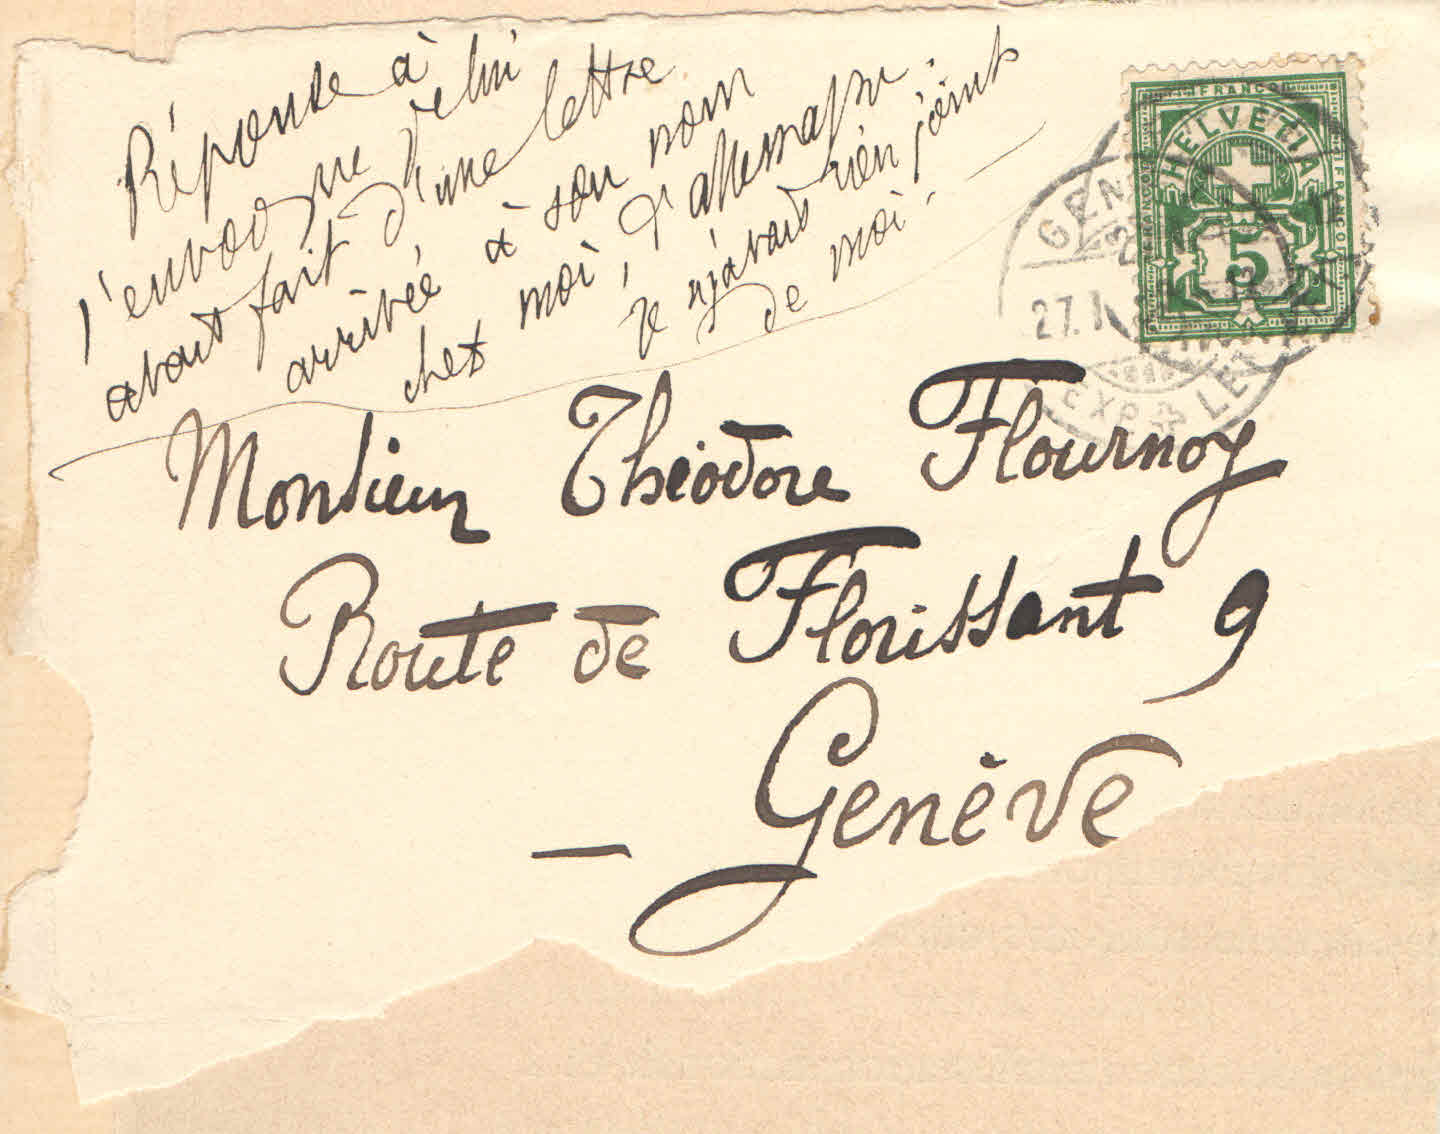 Réponse à
l'envoi que je lui
avait fait d'une lettre
arrivée à son nom
chez moi, d'allemagne.
Je n'avais rien joint
de moi.
FRANCO
HELVETIA
FRANCO
FRANCO
5
GEN
27.1
EXP. LET
Monsieur Théodore Flournoy
Route de Florissant 9
- Genève